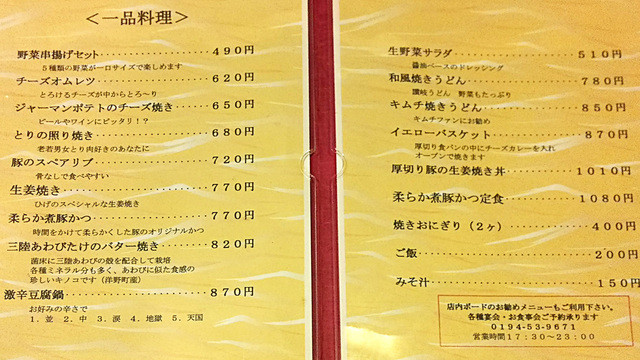 ＜一品料理＞
野菜串揚げセット・・・・・・・・・・490円
５種類の野菜が一口サイズで楽しめます
チーズオムレツ・・・・・・・・・・・620円
とろけるチーズが中からとろ～り
ジャーマンポテトのチーズ焼き・・・・650円
ビールやワインにピッタリ！？
とりの照り焼き・・・・・・・・・・・680円
老若男女とり肉好きのあなたに
豚のスペアリブ・・・・・・・・・・・720円
骨なしで食べやすい
生姜焼き・・・・・・・・・・・・・・770円
ひげのスペシャルな生姜焼き
柔らか煮豚かつ・・・・・・・・・・・770円
時間をかけて柔らかくした豚のオリジナルかつ
三陸あわびたけのバター焼き・・・・・820円
菌床に三陸あわびの殻を配合して栽培
各種ミネラル分も多く、あわびに似た食感の
珍しいキノコです（洋野町産）
激辛豆腐鍋・・・・・・・・・・・・・870円
お好みの辛さで
１、並　２、中　３、涙　４、地獄　５、天国
生野菜サラダ・・・・・・・・・・・・510円
醤油ベースのドレッシング
和風焼きうどん・・・・・・・・・・・780円
讃岐うどん　野菜もたっぷり
キムチ焼きうどん・・・・・・・・・・850円
キムチファンにお勧め
イエローバスケット・・・・・・・・・870円
厚切り食パンの中にチーズカレーを入れ
オーブンで焼きます
厚切り豚の生姜焼き丼・・・・・・・・1010円
柔らか煮豚かつ定食・・・・・・・・・1080円
焼きおにぎり（２ヶ）・・・・・・・・400円
ご飯・・・・・・・・・・・・・・・・200円
みそ汁・・・・・・・・・・・・・・・150円
店内ボードのお勧めメニューもご利用下さい。
各種宴会・お食事会ご予約承ります
0194-53-9671
営業時間17:30～23:00